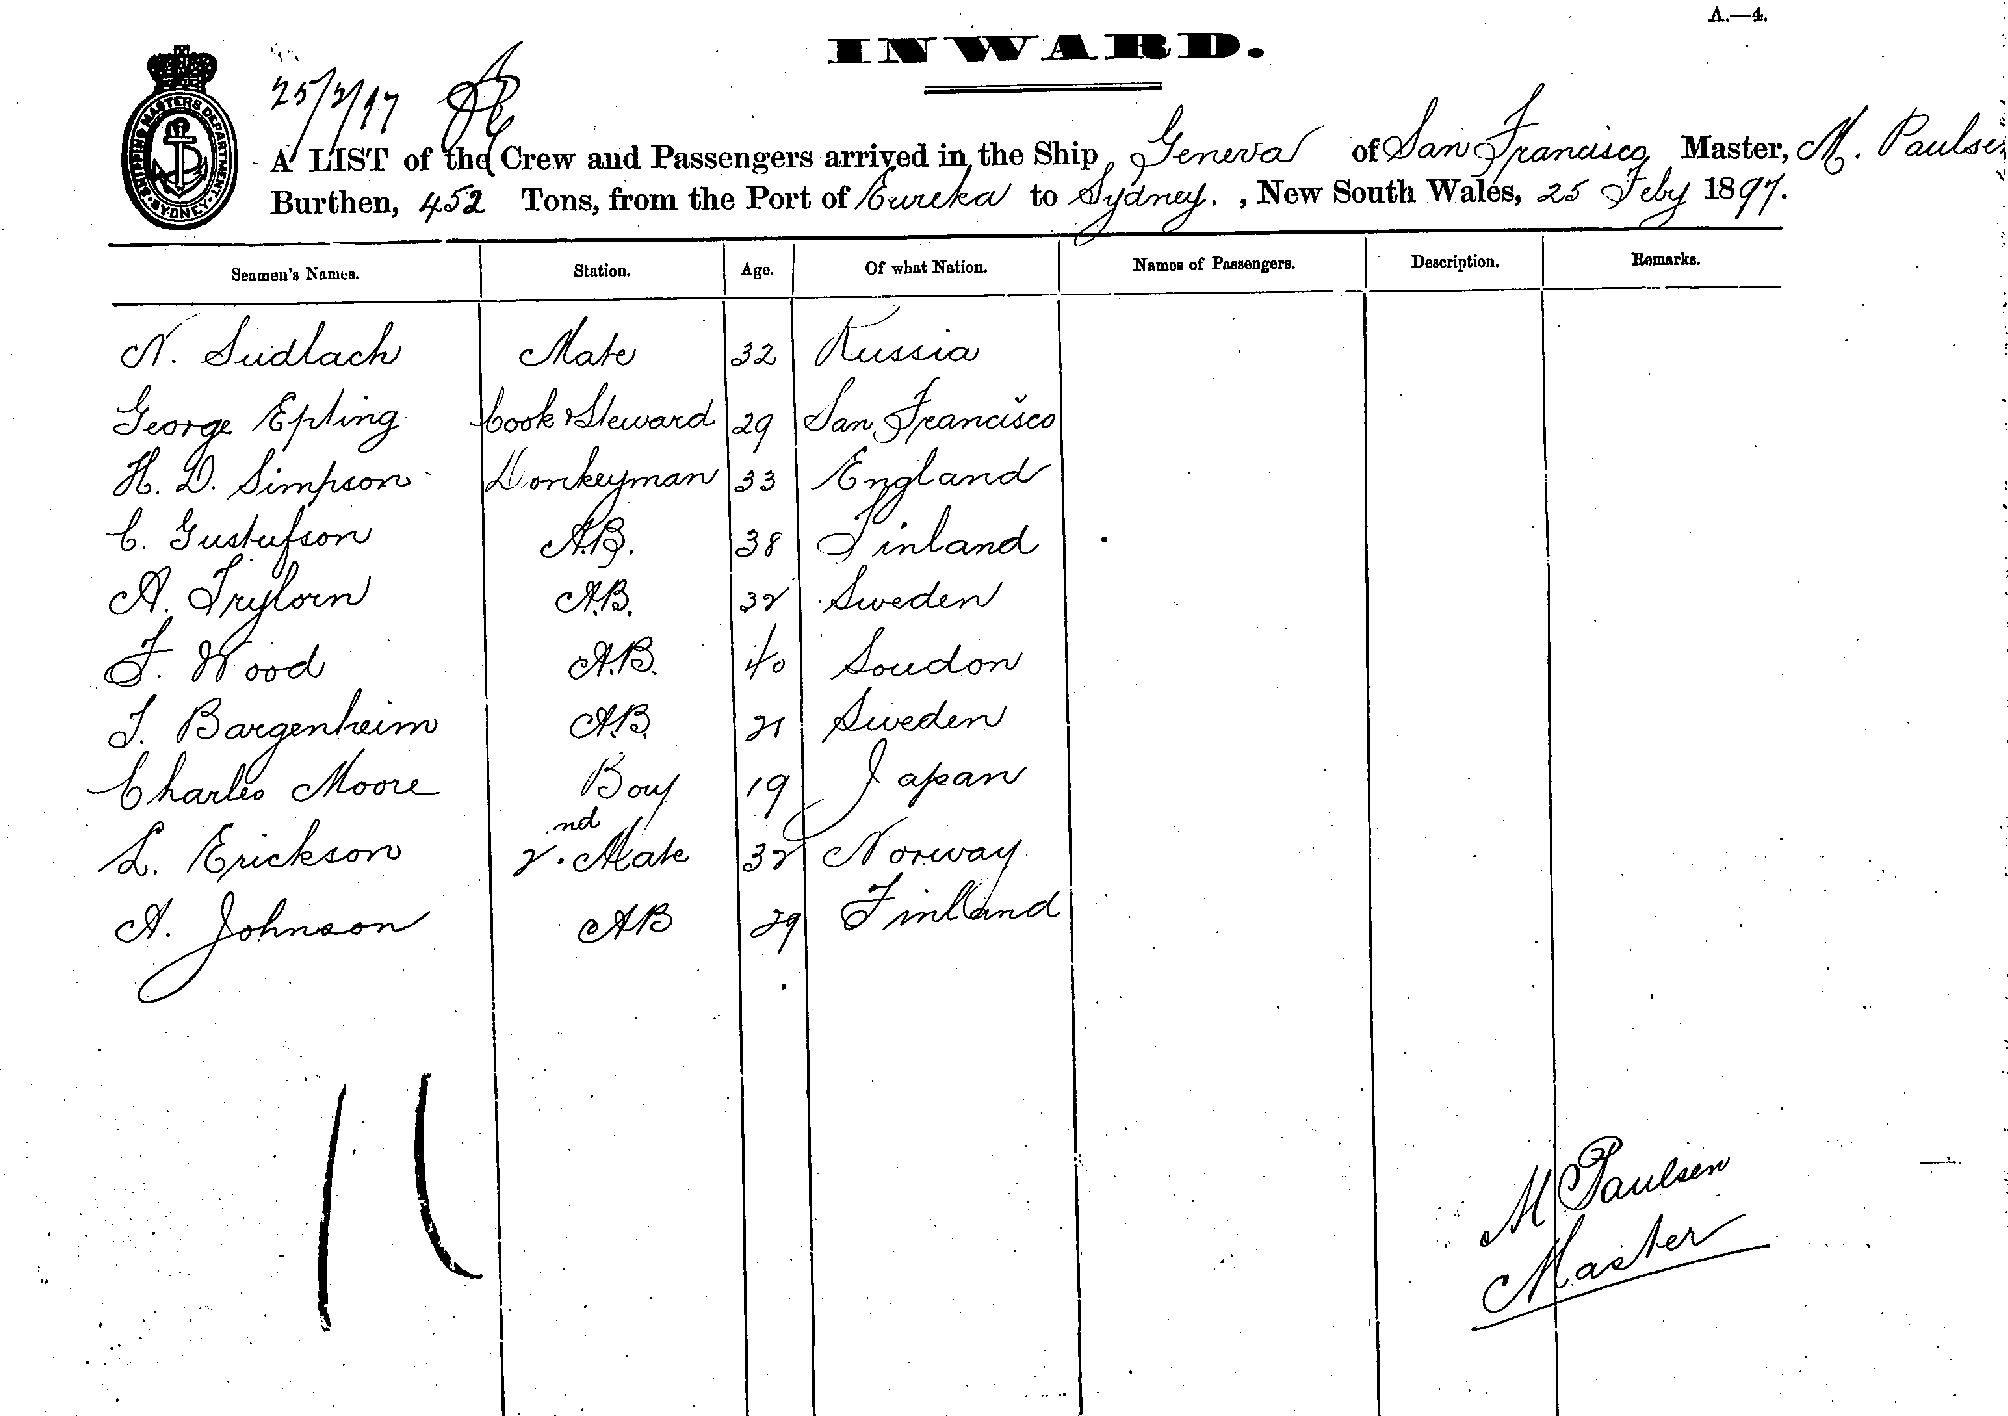 A.—4.
INWARD.
SHIPPING MASTERS DEPARTMENT SYDNEY
25/2/97
A LIST of the Crew and Passengers arrived in the Ship Geneva of San Francisco Master, M. Paulsen
Burthen, 452 Tons, from the Port of Eureka to Sydney. , New South Wales, 25 Feby 1897.
Seamen's Names. Station. Age. Of what Nation. Names of Passengers. Description. Remarks.
N. Sudlach Mate 32 Russia
George Epling Cook & Steward 29 San Francisco
H. D. Simpson Donkeyman 33 England
C. Gustafson A.B. 38 Finland
A. A.B. 32 Sweden
F. Wood A.B. 40 Soudon
J. Bargenheim A.B. 21 Sweden
Charles Moore Boy 19 Japan
L. Erickson 2nd Mate 32 Norway
A. Johnson AB 29 Finland
M Paulsen
Master